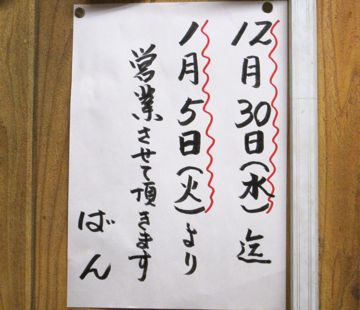 12月30日(水)迄
1月5日(火)より
営業させて頂きます
ばん